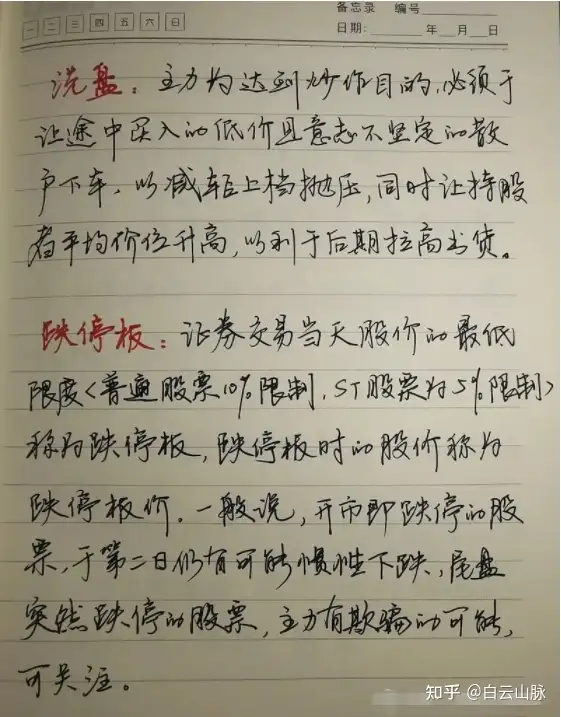 备忘录 编号
一 二 三 四 五 六 日
日期: 年 月 日
洗盘：主力为达到炒作目的，必须于
让途中买入的低价且意志不坚定的散
户下车，以减轻上档抛压，同时让持股
者平均价位升高，以利于后期拉高出货。
跌停板：证券交易当天股价的最低
限度<普通股票10%限制，ST股票为5%限制>
称为跌停板，跌停板时的股价称为
跌停板价。一般说，开市即跌停的股
票，于第二日仍有可能惯性下跌，尾盘
突然跌停的股票，主力有欺骗的可能，
可关注。
知乎 @白云山脉